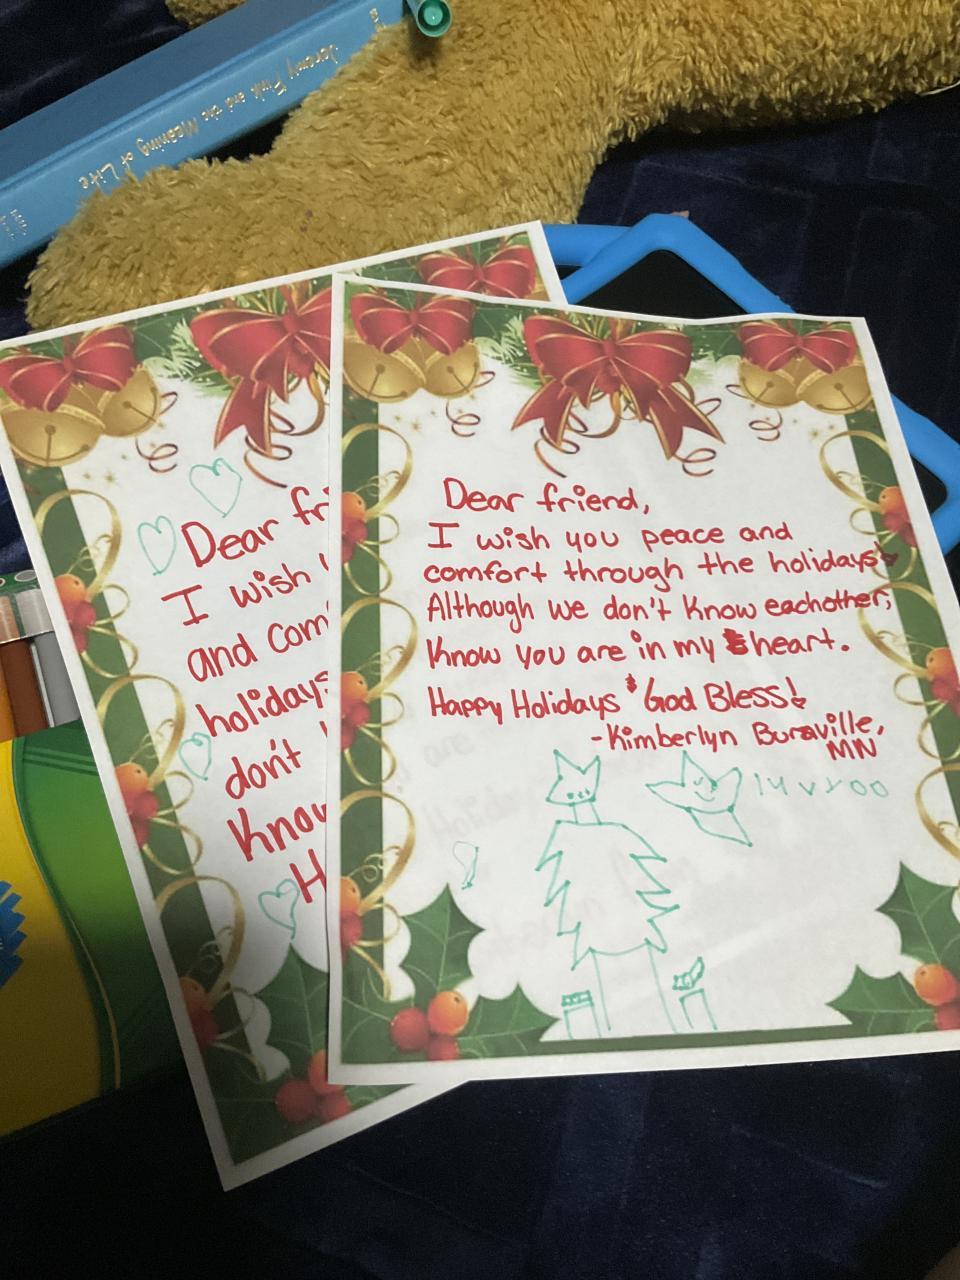 Jeremy Fink and the Meaning of Life
Dear
I wish
and com
holidays
don't
Know
H
Dear friend,
I wish you peace and
comfort through the holidays!
Although we don't know eachother,
Know you are in my heart.
Happy Holidays & God Bless!
-Kimberlyn
MN